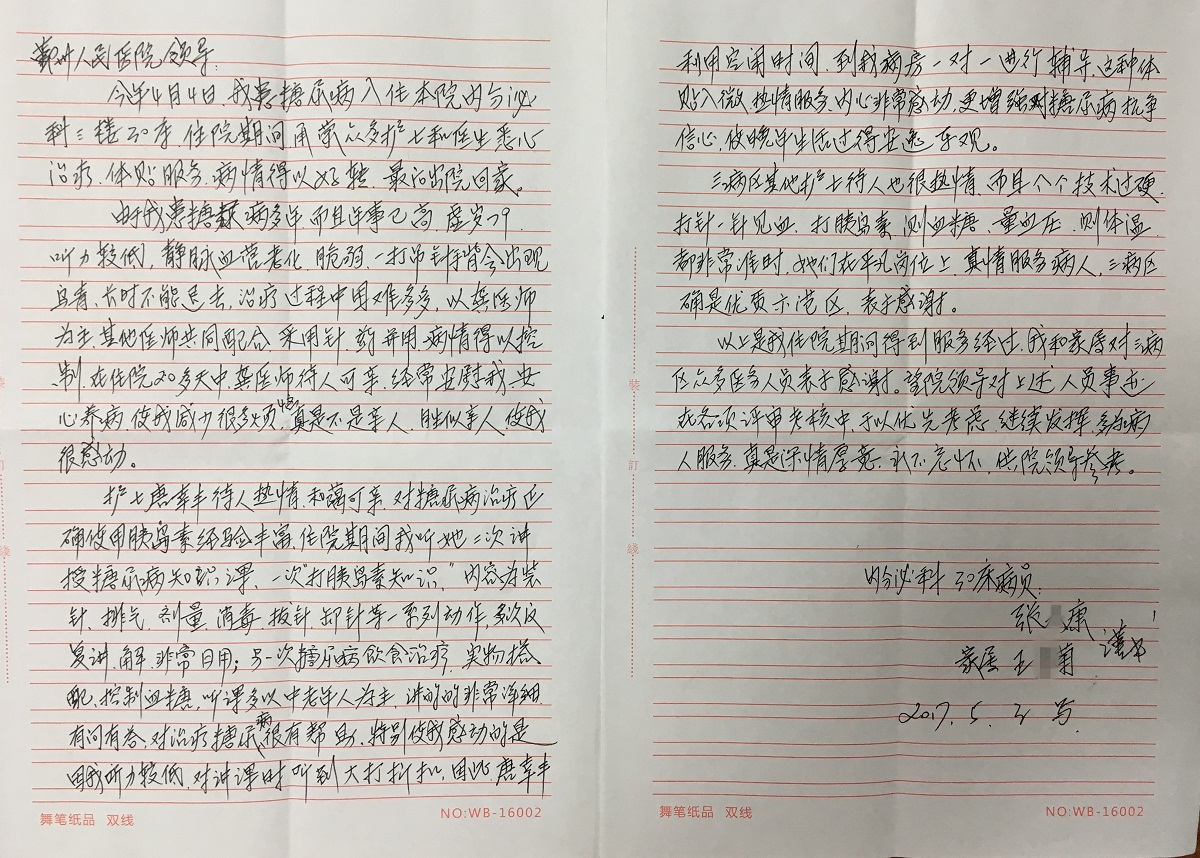 鄞州人民医院领导:
今年4月4日,我患糖尿病入住本院内分泌
科三楼30床,住院期间用蒙众多护士和医生悉心
治疗,体贴服务,病情得以好转,最后出院回家。
由于我患糖尿病多年而且年事已高,虚岁79,
听力较低,静脉血管老化,脆弱,一打吊针手背会出现
乌青,长时不能退去,治疗过程中困难多多,以龚医师
为主,其他医师共同配合,采用针药并用,病情得以控
制,在住院20多天中,龚医师待人可亲,经常安慰我,安
心养病,使我减少很多烦恼,真是不是亲人,胜似亲人,使我
很感动。
护士唐幸丰待人热情,和蔼可亲,对糖尿病治疗正
确使用胰岛素经验丰富,住院期间我听她二次讲
授糖尿病知识课,一次"打胰岛素知识,"内容为装
针、排气、剂量、消毒、拔针、卸针等一系列动作,多次反
复讲、解,非常日用;另一次糖尿病饮食治疗,实物搭
配,控制血糖,听课多以中老年人为主,讲的的非常详细,
有问有答,对治疗糖尿病很有帮助,特别使我感动的是
因我听力较低,对讲课时听到大打折扣,因此,唐幸丰
舞笔纸品 双线
NO:WB-16002
利用空闲时间,到我病房一对一进行辅导,这种体
贴入微,热情服务,内心非常感动,更增强对糖尿病抗争
信心,使晚年生活过得安逸乐观。
三病区其他护士待人也很热情,而且个个技术过硬,
打针一针见血,打胰岛素,测血糖、量血压、测体温
都非常准时,她们在平凡岗位上,真情服务病人,三病区
确是优质示范区,表示感谢。
以上是我住院期间得到服务经过,我和家属对三病
区众多医务人员表示感谢。望院领导对上述人员事迹
在各项评审考核中,予以优先考虑,继续发挥,多为病
人服务,真是深情厚意,永不忘怀,供院领导参考。
内分泌科30床病员:
张 康
家属 王 菊
谨书
2017.5.2写
舞笔纸品 双线
NO:WB-16002
装
订
线